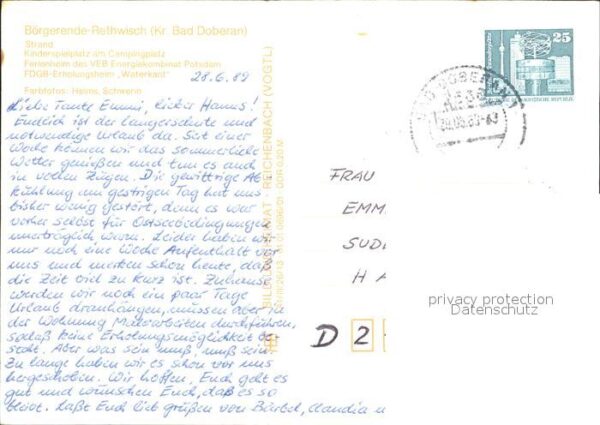 Börgerende-Rethwisch (Kr. Bad Doberan)
Strand
Kinderspielplatz am Campingplatz
Ferienheim des VEB Energiekombinat Potsdam
FDGB-Erholungsheim „Waterkant"
Farbfotos: Heins, Schwerin
28.6.89
Liebe Tante Emmi, lieber Hanns!
Endlich ist der langersehnte und
notwendige Urlaub da. Seit einer
Woche können wir das sommerliche
Wetter genießen und tun es auch
in vollen Zügen. Die gewittrige Ab
kühlung am gestrigen Tag hat uns
bisher wenig gestört, denn es war
vorher selbst für Ostseebedingungen
unerträglich warm. Leider haben wir
nur noch eine Woche Aufenthalt vor
uns und merken schon heute, daß
die Zeit viel zu kurz ist. Zuhause
werden wir noch ein paar Tage
Urlaub dranhängen, müssen aber in
der Wohnung Malerarbeiten durchführen,
sodaß keine Erholungsmöglichkeit be
steht. Aber was sein muß, muß sein.
Zu lange haben wir es schon vor uns
hergeschoben. Wir hoffen, Euch geht es
gut und wünschen Euch, daß es so
bleibt. Laßt Euch lieb grüßen von Bärbel, Claudia u
BILD UND HEIMAT REICHENBACH (VOGTL)
25
BAD DOBERAN
FRAU
EMM
SUD
HA
D 2
privacy protection
Datenschutz